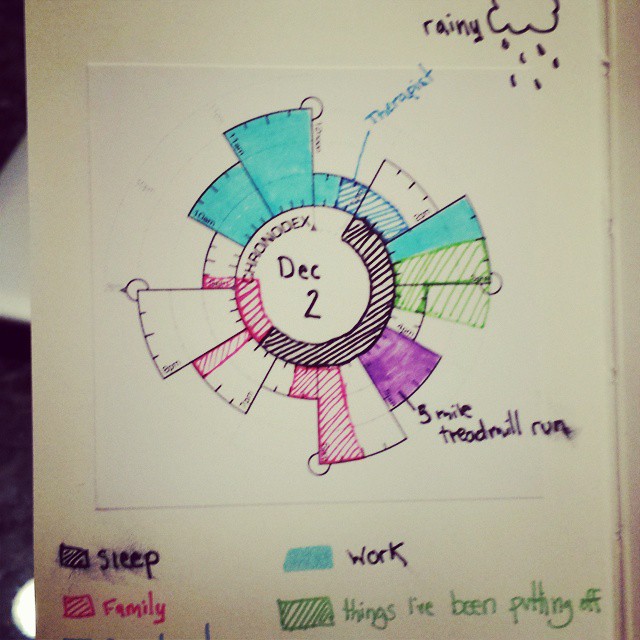 rainy
Therapist
CHRONODEX
Dec
2
5 mile
treadmill run
Sleep
work
Family
things i've been putting off